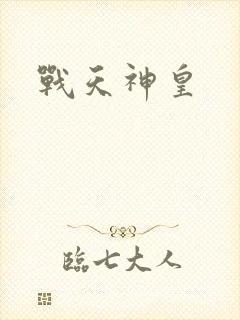 戰天神皇
臨七大人